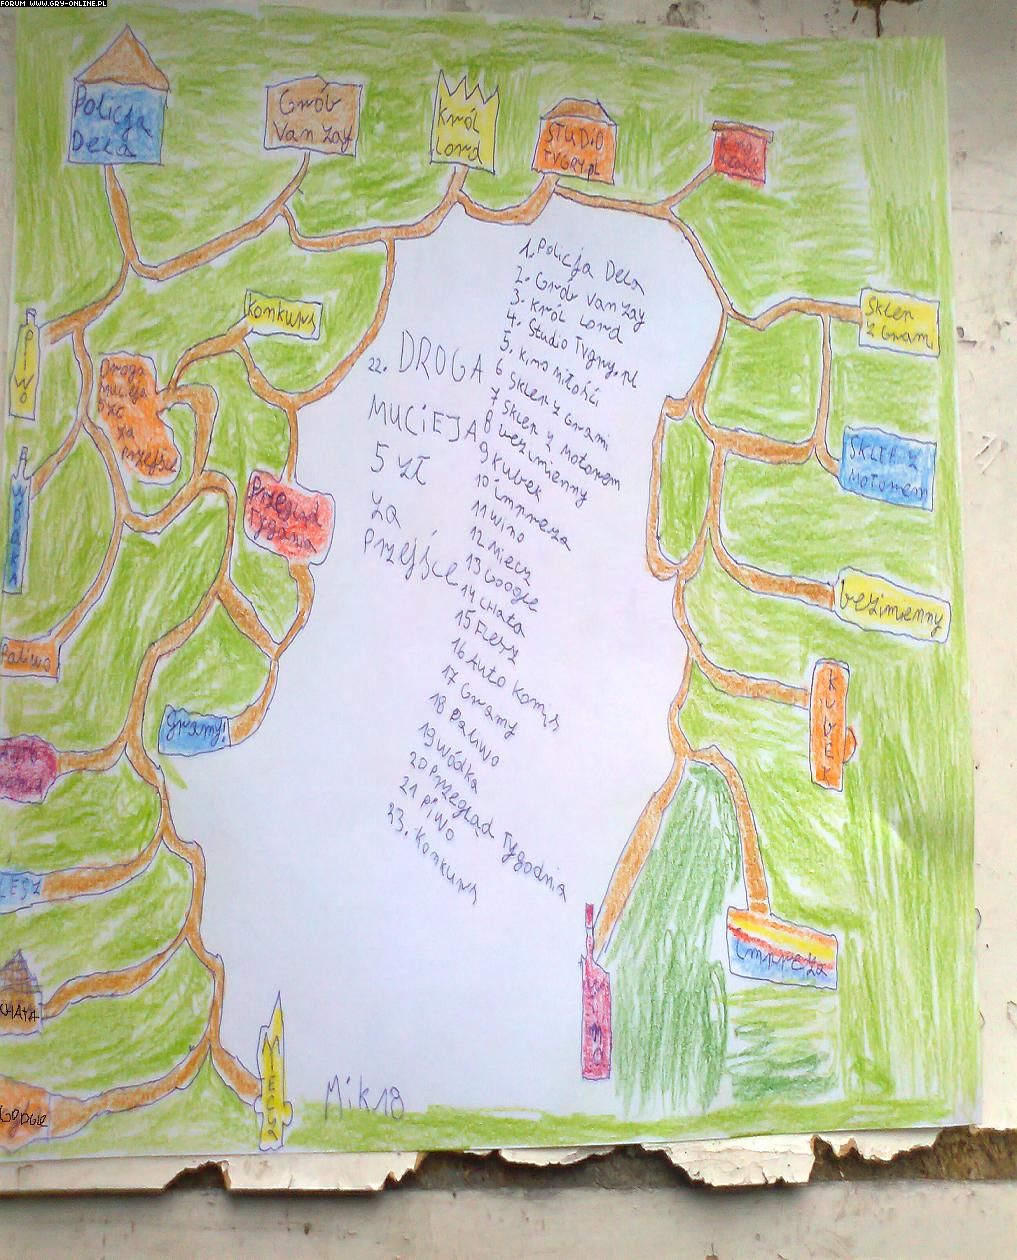 FORUM WWW.GRY-ONLINE.PL
Policja
Dela
Grób
Van Zay
Król
Lord
STUDIO
TVGRY.pl
Konkurs
PIWO
Droga
Mucieja
5 XC
za
przejście
Sklep
z Grami
SKLEP Z
MoTorem
bezimienny
KUBEK
Przegląd
Tygodnia
Paliwo
Gramy!
impreza
WINO
MIECZ
CHATA
GOOGLE
1. Policja Dela
2. Grób Van Zay
3. Król Lord
4. Studio Tvgry.pl
5. Kino miłości
6 Sklep z Grami
7 Sklep z Motorem
8 bezimienny
9 Kubek
10 impreza
11 Wino
12 Miecz
13 Google
14 Chata
15 Flesz
16 Auto Komis
17 Gramy
18 Paliwo
19 Wódka
20 Przegląd Tygodnia
21 Piwo
23. Konkurs
22. DROGA
MUCIEJA
5 zł
za
przejście
Mik18